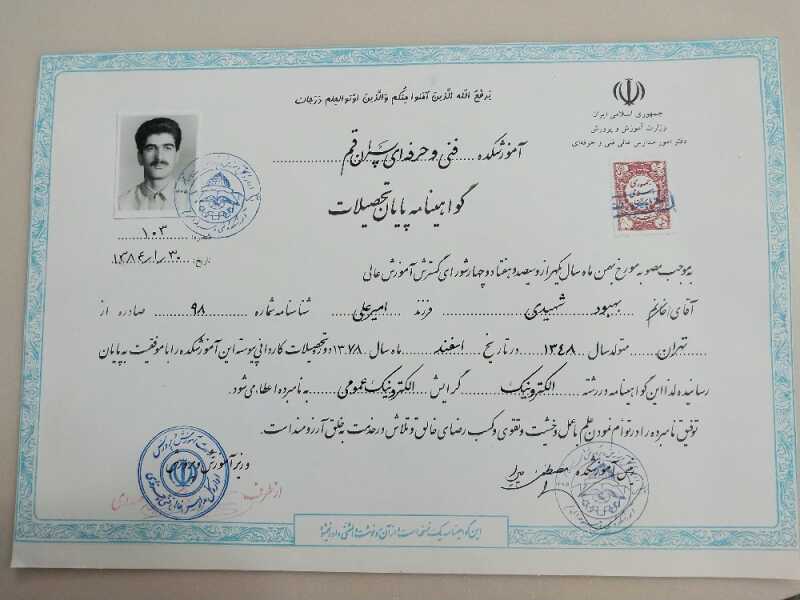 یرفع الله الذین آمنوا منکم والذین اوتوا العلم درجات
جمهوری اسلامی ایران
وزارت آموزش و پرورش
دفتر امور مدارس عالی فنی و حرفه‌ای
آموزشکده فنی و حرفه‌ای پسران قم
گواهینامه پایان تحصیلات
شماره: ۱۰۳
تاریخ: ۱۳۸۴/۱/۳۰
به موجب مصوبه مورخ بهمن ماه سال یکهزار و سیصد و هفتاد و چهار شورای گسترش آموزش عالی
آقای/خانم بهبود شهیدی فرزند امیرعلی شناسنامه شماره ۹۸ صادره از
تهران متولد سال ۱۳۴۸ در تاریخ اسفند ماه سال ۱۳۷۸ دوره تحصیلات کاردانی پیوسته این آموزشکده را با موفقیت به پایان
رسانیده لذا این گواهینامه در رشته الکترونیک گرایش الکترونیک عمومی به نامبرده اعطا می شود.
توفیق نامبرده را در توأم نمودن علم با عمل و خشیت و تقوی و کسب رضای خالق و تلاش در خدمت به خلق آرزومند است.
وزیر آموزش و پرورش
رئیس آموزشکده مصطفی
از طرف
این گواهینامه یک نسخه است و از آن رونوشت و المثنی داده نمیشود